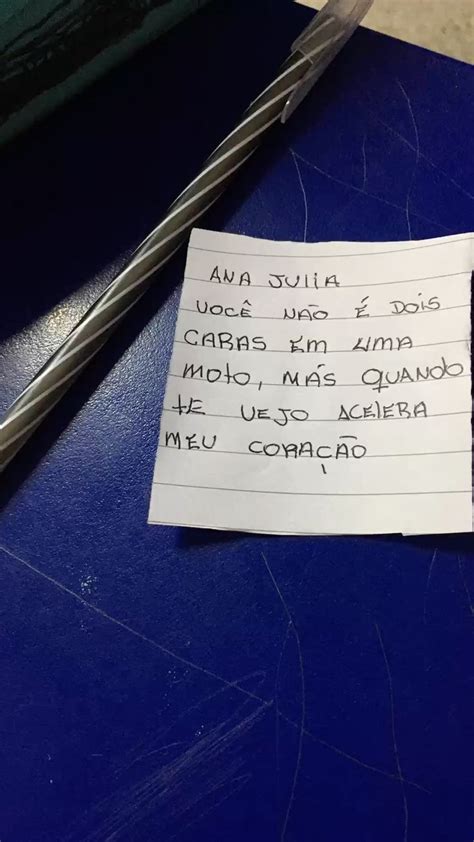 ANA JULIA
VOCÊ NÃO É DOIS
CARAS EM UMA
MOTO, MÁS QUANDO
TE VEJO ACELERA
MEU CORAÇÃO